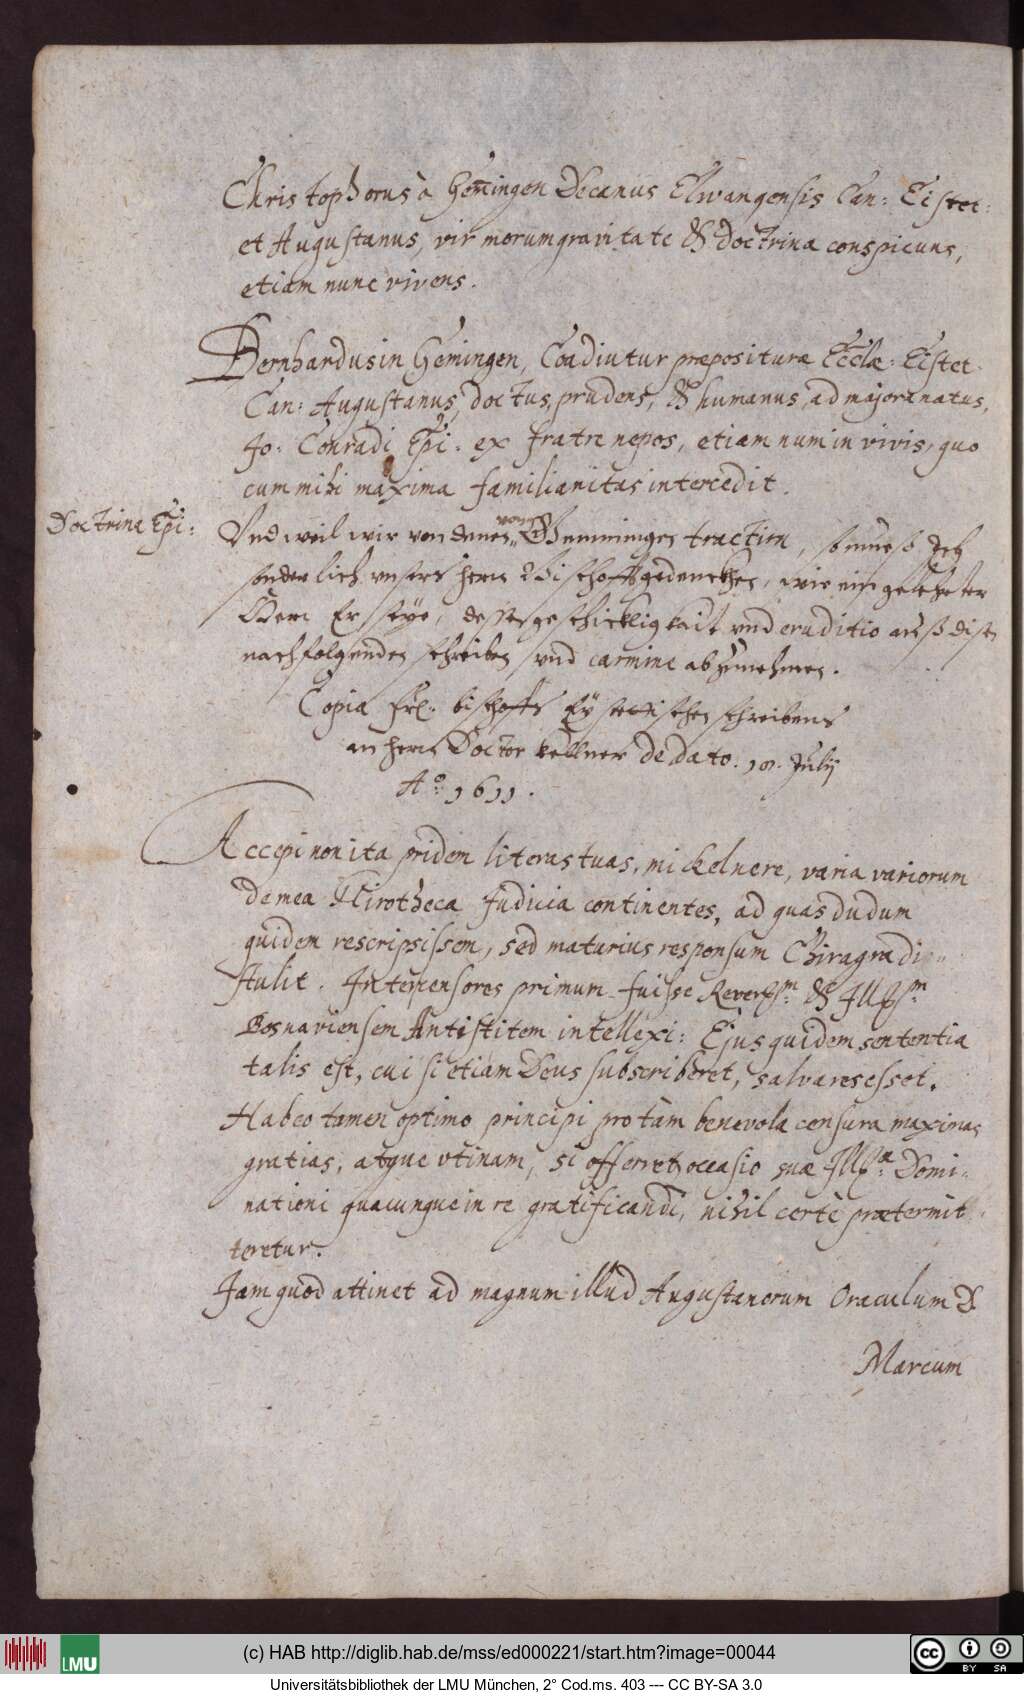 Christophorus à Gem̄ingen Decanus Elwangensis Can: Eistet:
et Augustanus, vir morum gravitate & doctrina conspicuus,
etiam nunc vivens.
Bernhardus in Gem̄ingen, Coadiutur præposituræ Eccl͞æ: Eistet
Can: Augustanus, doctus, prudens, & humanus, ad majora natus,
Jo: Conradi Ep͞i: ex fratre nepos, etiam num in vivis, quo
cum mihi maxima familiaritas intercedit.
Doctrina Ep͞i:
Vnd weil wir von denen von Gemmingen tractirn, so mueß Jch
sonderlich vnsers herrn Bischoffs gedenckhen, wie ein gelehrter
Herr Er seye, dessen geschickligkait vnd eruditio auß disen
nachfolgenden schreiben vnd carmine abzunehmen.
Copia Frl: bischoffs Eystettischen schreibens
an herrn Doctor kellner de dato. 19. Julij
Aº: 1611.
Accepi non ita pridem literas tuas, mi kelnere, varia variorum
de mea Chirotheca Judicia continentes, ad quas dudum
quidem rescripsissem, sed maturius responsum Chiragra di„
stulit. Inter censores primum fuisse Reverss͞m: & Illss͞m:
Bosnaviensem Antistitem intellexi: Ejus quidem sententia
talis est, cui si etiam Deus subscriberet, salva res esset.
Habeo tamen optimo principi pro tàm benevola censura maximas
gratias, atque vtinam, si offerret occasio suæ Illss:æ Domi„
nationi quacunque in re gratificandi, nihil certè prætermit„
teretur.
Jam quod attinet ad magnum illud Augustanorum Oraculum D.
Marcum
(c) HAB http://diglib.hab.de/mss/ed000221/start.htm?image=00044
Universitätsbibliothek der LMU München, 2° Cod.ms. 403 --- CC BY-SA 3.0
LMU
cc BY SA